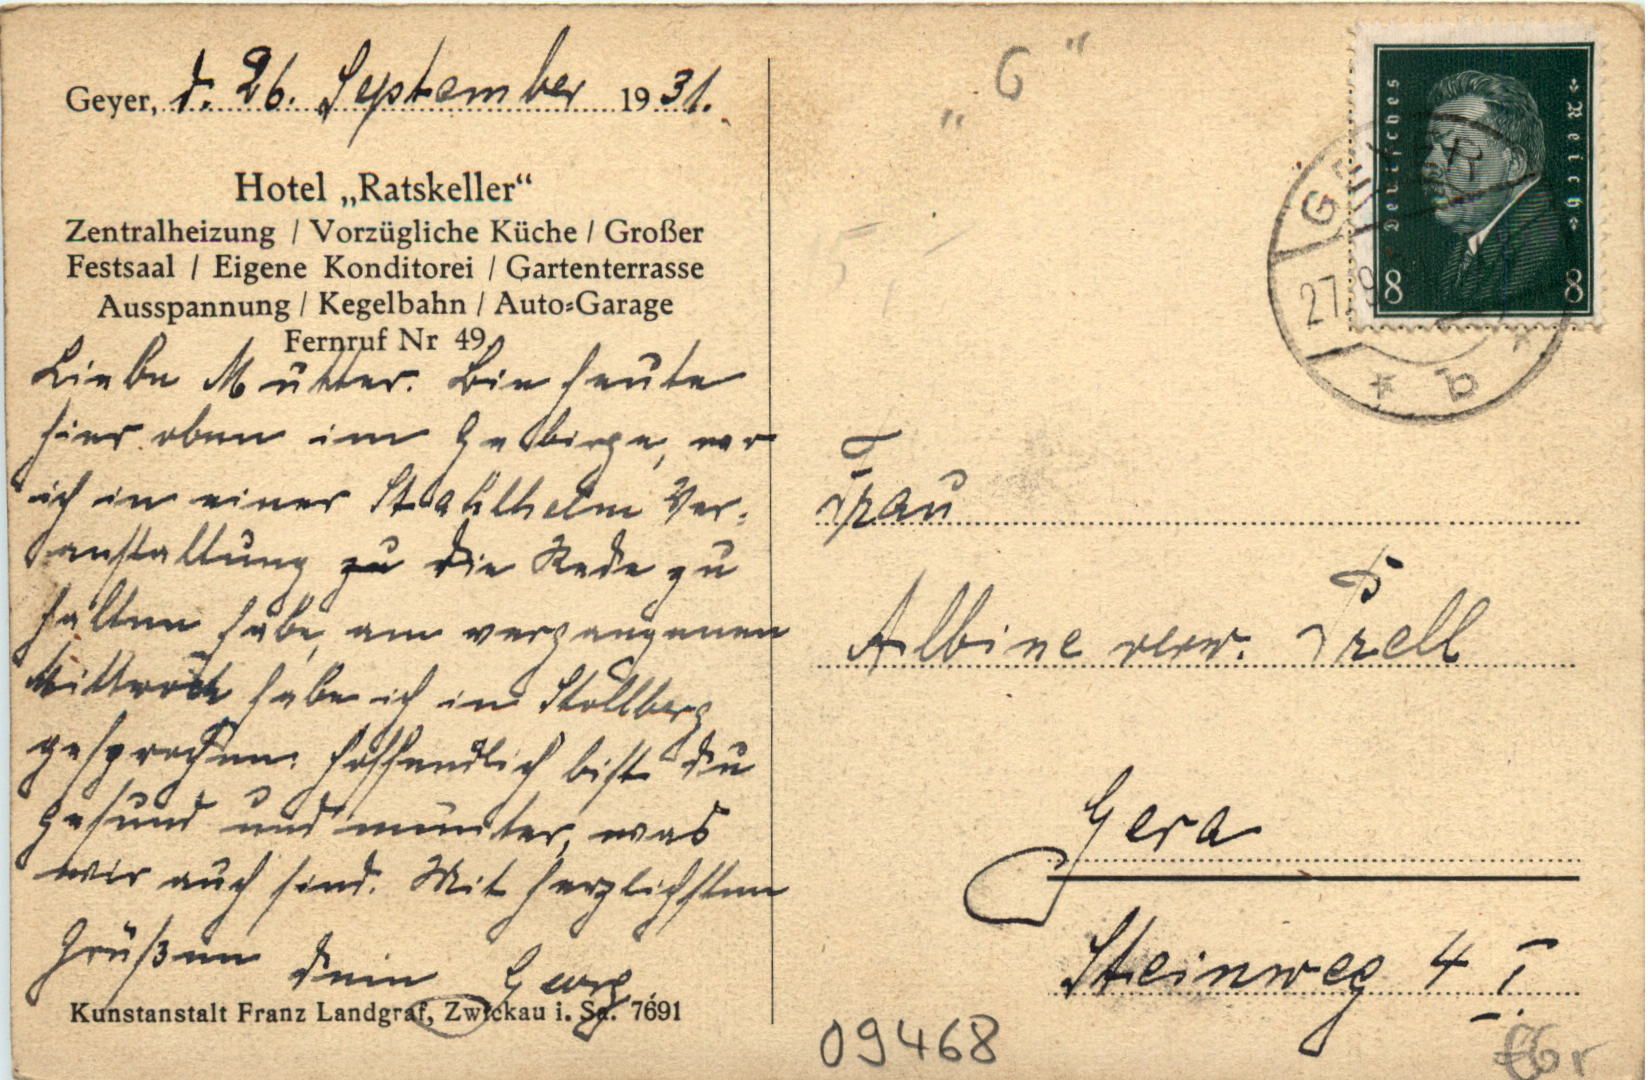 Geyer, d. 26. September 1931.
Hotel „Ratskeller“
Zentralheizung / Vorzügliche Küche / Großer
Festsaal / Eigene Konditorei / Gartenterrasse
Ausspannung / Kegelbahn / Auto=Garage
Fernruf Nr 49.
Liebe Mutter. Bin heute
hier oben im Gebirge, wo
ich in einer Stahlhelm Ver-
anstaltung zu die Rede zu
halten habe, am vergangenen
Mittwoch habe ich in Stollberg
gesprochen. Hoffendlich bist du
gesund und munter, was
wir auch sind. Mit herzlichsten
Grüßen dein Georg.
Kunstanstalt Franz Landgraf, Zwickau i. Sa. 7691
„ G “
Deutsches Reich
8 8
GEYER
27. 9
* b *
Frau
Albine verw. Prell
Gera
Steinweg 4 I
09468